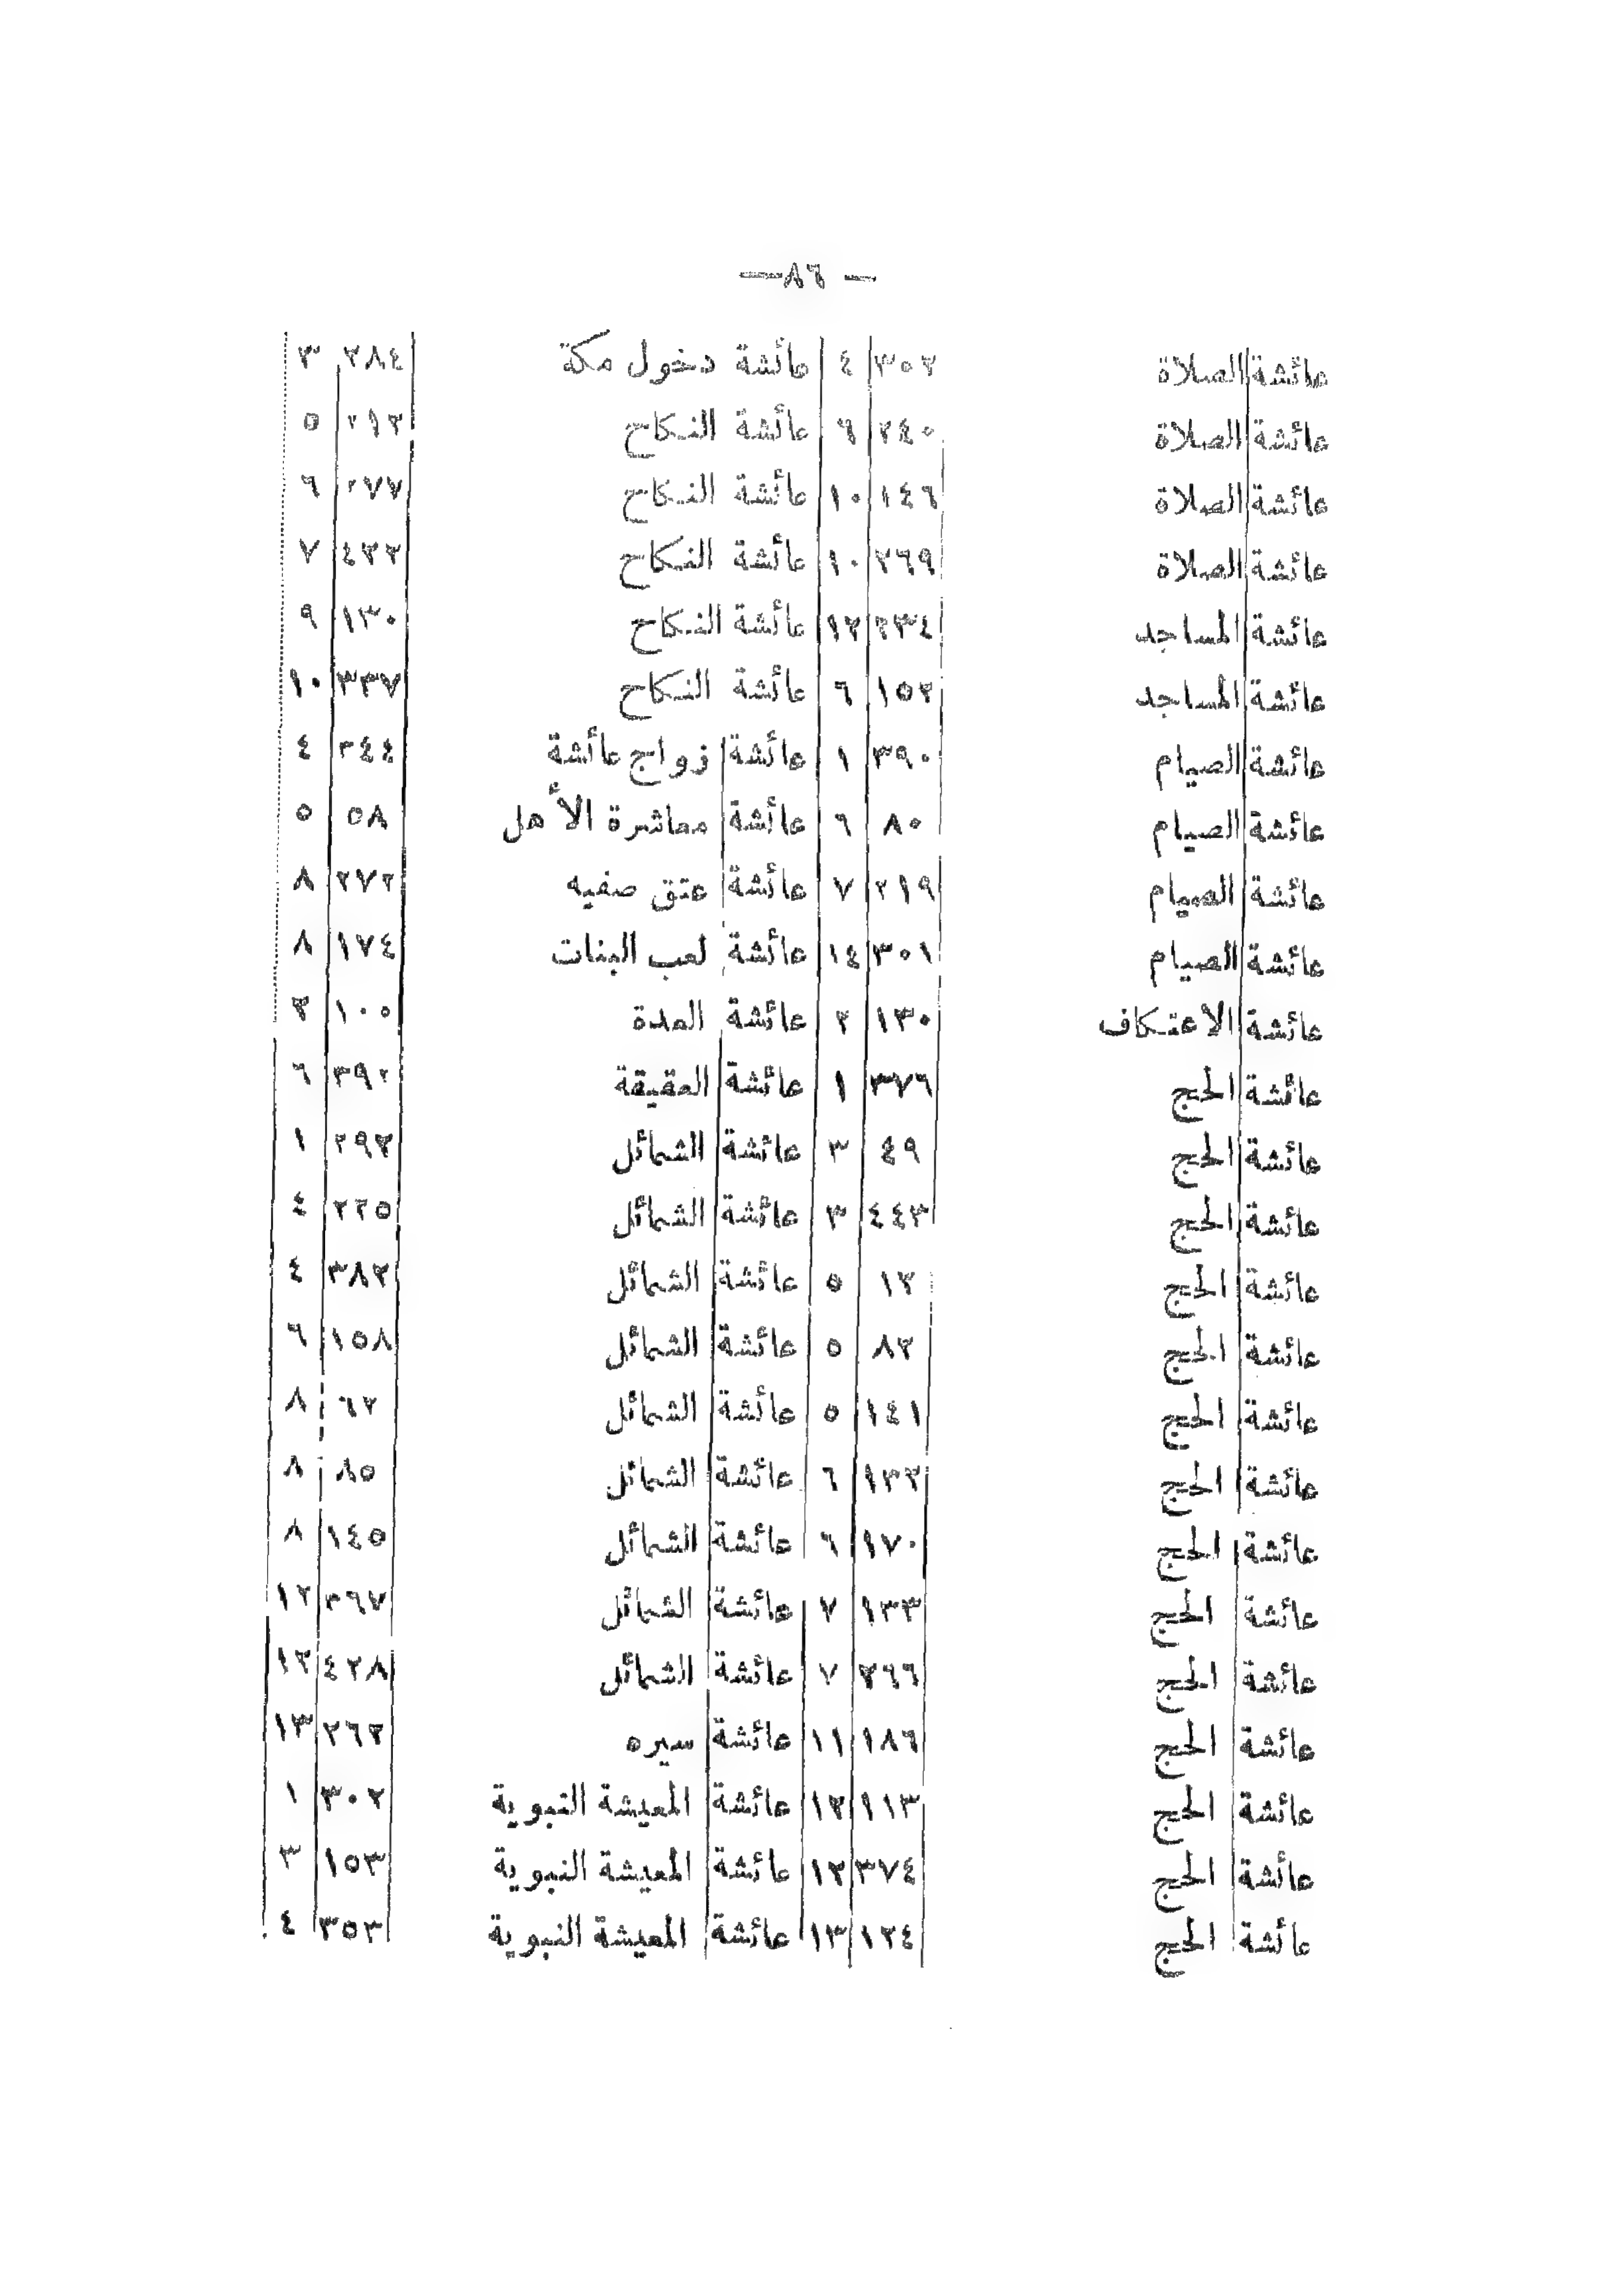 — ٨٦ —
عائشة الصلاة ٣٥٢ ٤ عائشة دخول مكة ٢٨٤ ٣
عائشة الصلاة ٢٤٠ ٦ عائشة النكاح ٢١٢ ٥
عائشة الصلاة ١٤٦ ١٠ عائشة النكاح ٢٧٧ ٦
عائشة الصلاة ٢٦٩ ١٠ عائشة النكاح ٤٢٢ ٧
عائشة المساجد ٢٣٤ ١٢ عائشة النكاح ١٣٠ ٩
عائشة المساجد ١٥٢ ٦ عائشة النكاح ٣٣٧ ١٠
عائشة الصيام ٣٩٠ ١ عائشة زواج عائشة ٢٤٤ ٤
عائشة الصيام ٨٠ ٦ عائشة معاشرة الأهل ٥٨ ٥
عائشة الصيام ٢١٩ ٧ عائشة عتق صفيه ٢٧٢ ٨
عائشة الصيام ٣٠١ ١٤ عائشة لعب البنات ١٧٤ ٨
عائشة الاعتكاف ١٣٠ ٢ عائشة العدة ١٠٥ ٢
عائشة الحج ٣٧٦ ١ عائشة العقيقة ٣٩٢ ٦
عائشة الحج ٤٩ ٣ عائشة الشمائل ٢٩٢ ١
عائشة الحج ٤٤٣ ٣ عائشة الشمائل ٢٢٥ ٤
عائشة الحج ١٢ ٥ عائشة الشمائل ٣٨٢ ٤
عائشة الحج ٨٢ ٥ عائشة الشمائل ١٥٨ ٦
عائشة الحج ١٤١ ٥ عائشة الشمائل ٦٢ ٨
عائشة الحج ١٣٢ ٦ عائشة الشمائل ٨٥ ٨
عائشة الحج ١٧٠ ٦ عائشة الشمائل ١٤٥ ٨
عائشة الحج ١٣٣ ٧ عائشة الشمائل ٣٦٧ ١٢
عائشة الحج ٢٦٦ ٧ عائشة الشمائل ٤٢٨ ١٢
عائشة الحج ١٨٦ ١١ عائشة سيره ٢٦٢ ١٣
عائشة الحج ١١٣ ١٢ عائشة المعيشة النبوية ٣٠٢ ١
عائشة الحج ٣٧٤ ١٢ عائشة المعيشة النبوية ١٥٣ ٣
عائشة الحج ١٢٤ ١٣ عائشة المعيشة النبوية ٣٥٣ ٤